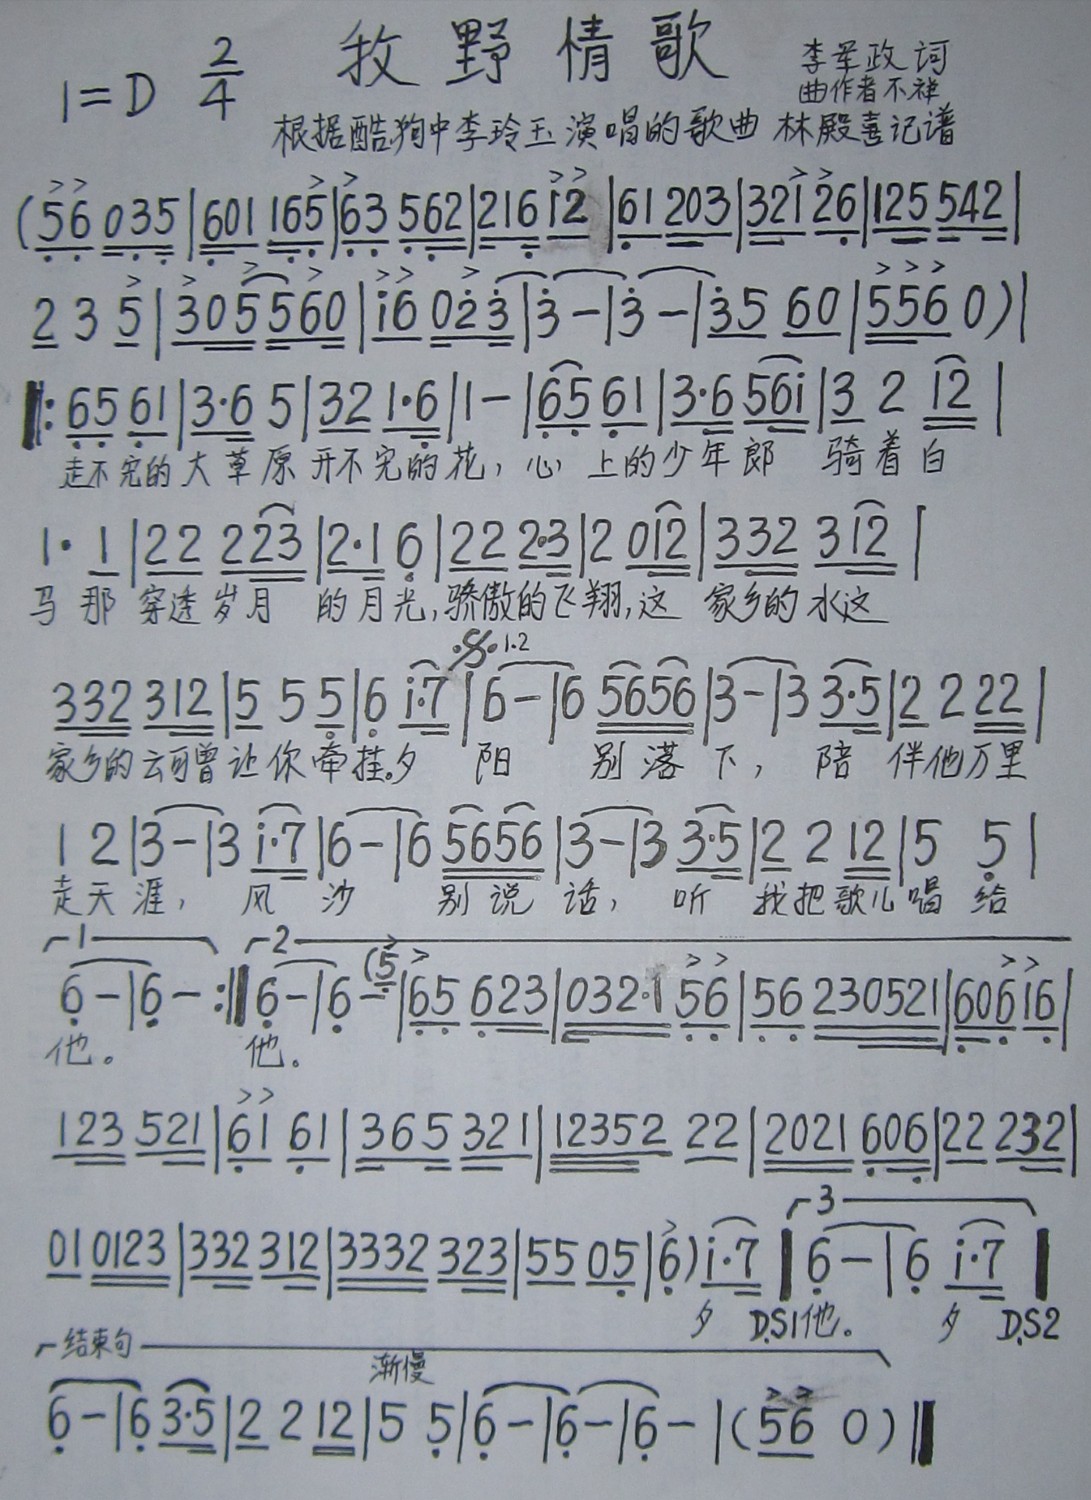 牧野情歌
1=D 2/4
李军政词
曲作者不祥
根据酷狗中李玲玉演唱的歌曲 林殿喜记谱
(56 035|601 165|63 562|216 i2|61 203|321 26|125 542|
2 3 5|305 560|i6 023|3-|3-|35 60|556 0)|
‖:65 61|3·6 5|32 1·6|1-|65 61|3·6 56i|3 2 12|
走不完的大草原开不完的花,心上的少年郎 骑着白
1· 1|22 223|2·1 6|22 2·3|2 012|332 312|
马那穿透岁月 的月光,骄傲的飞翔,这 家乡的水这
𝄋 1.2
332 312|5 5 5|6 i·7|6-|6 5656|3-|3 3·5|2 2 22|
家乡的云可曾让你牵挂。夕 阳 别落下, 陪 伴他万里
1 2|3-|3 i·7|6-|6 5656|3-|3 3·5|2 2 12|5 5|
走天涯, 风 沙 别说话, 听 我把歌儿唱 给
1 2
6-|6-:‖6-|6-(5|65 623|032·1 56|56 230521|606 16|
他。 他。
123 521|61 61|365 321|12352 22|2021 606|22 232|
3
01 0123|332 312|3332 323|55 05|6) i·7‖6-|6 i·7‖
夕 D.S1他。 夕 D.S2
结束句
渐慢
6-|6 3·5|2 2 12|5 5|6-|6-|6-|(56 0)‖